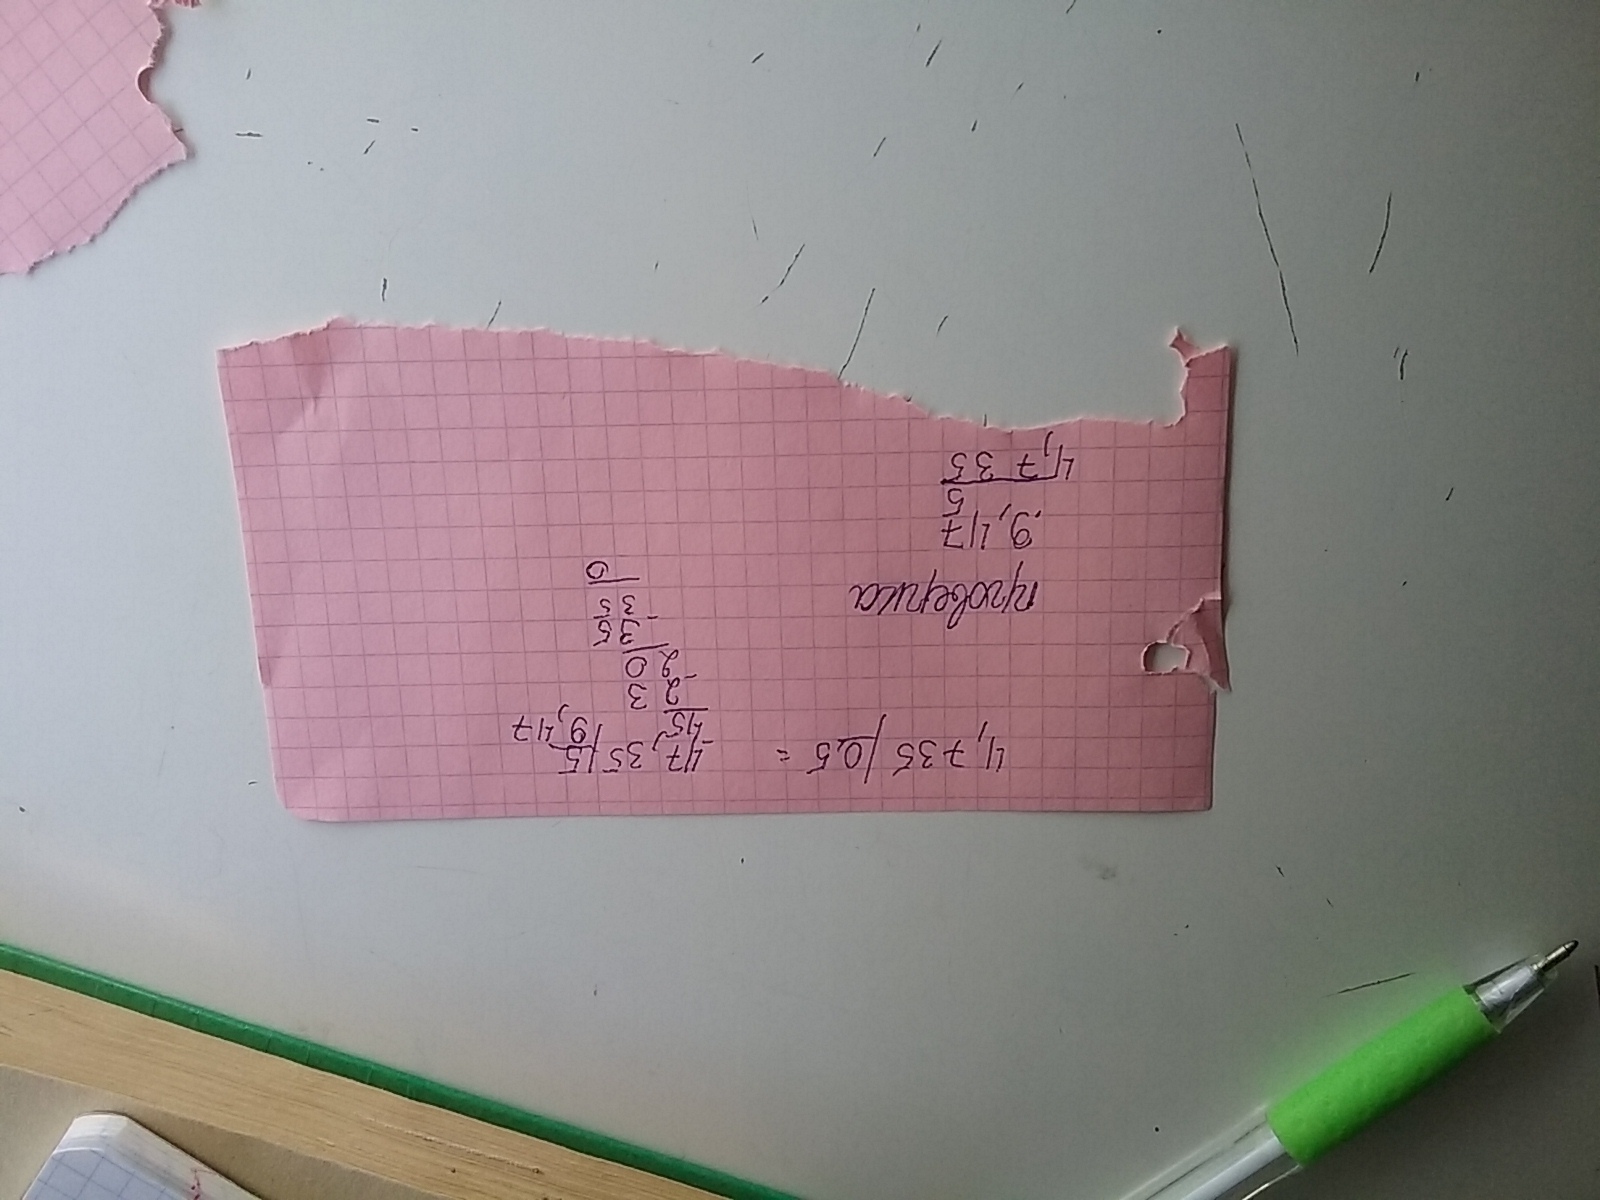 4,735 | 0,5 = 47,35 | 5
- 45 9,47
23
- 20
35
- 35
0
проверка
9,47
5
4,735